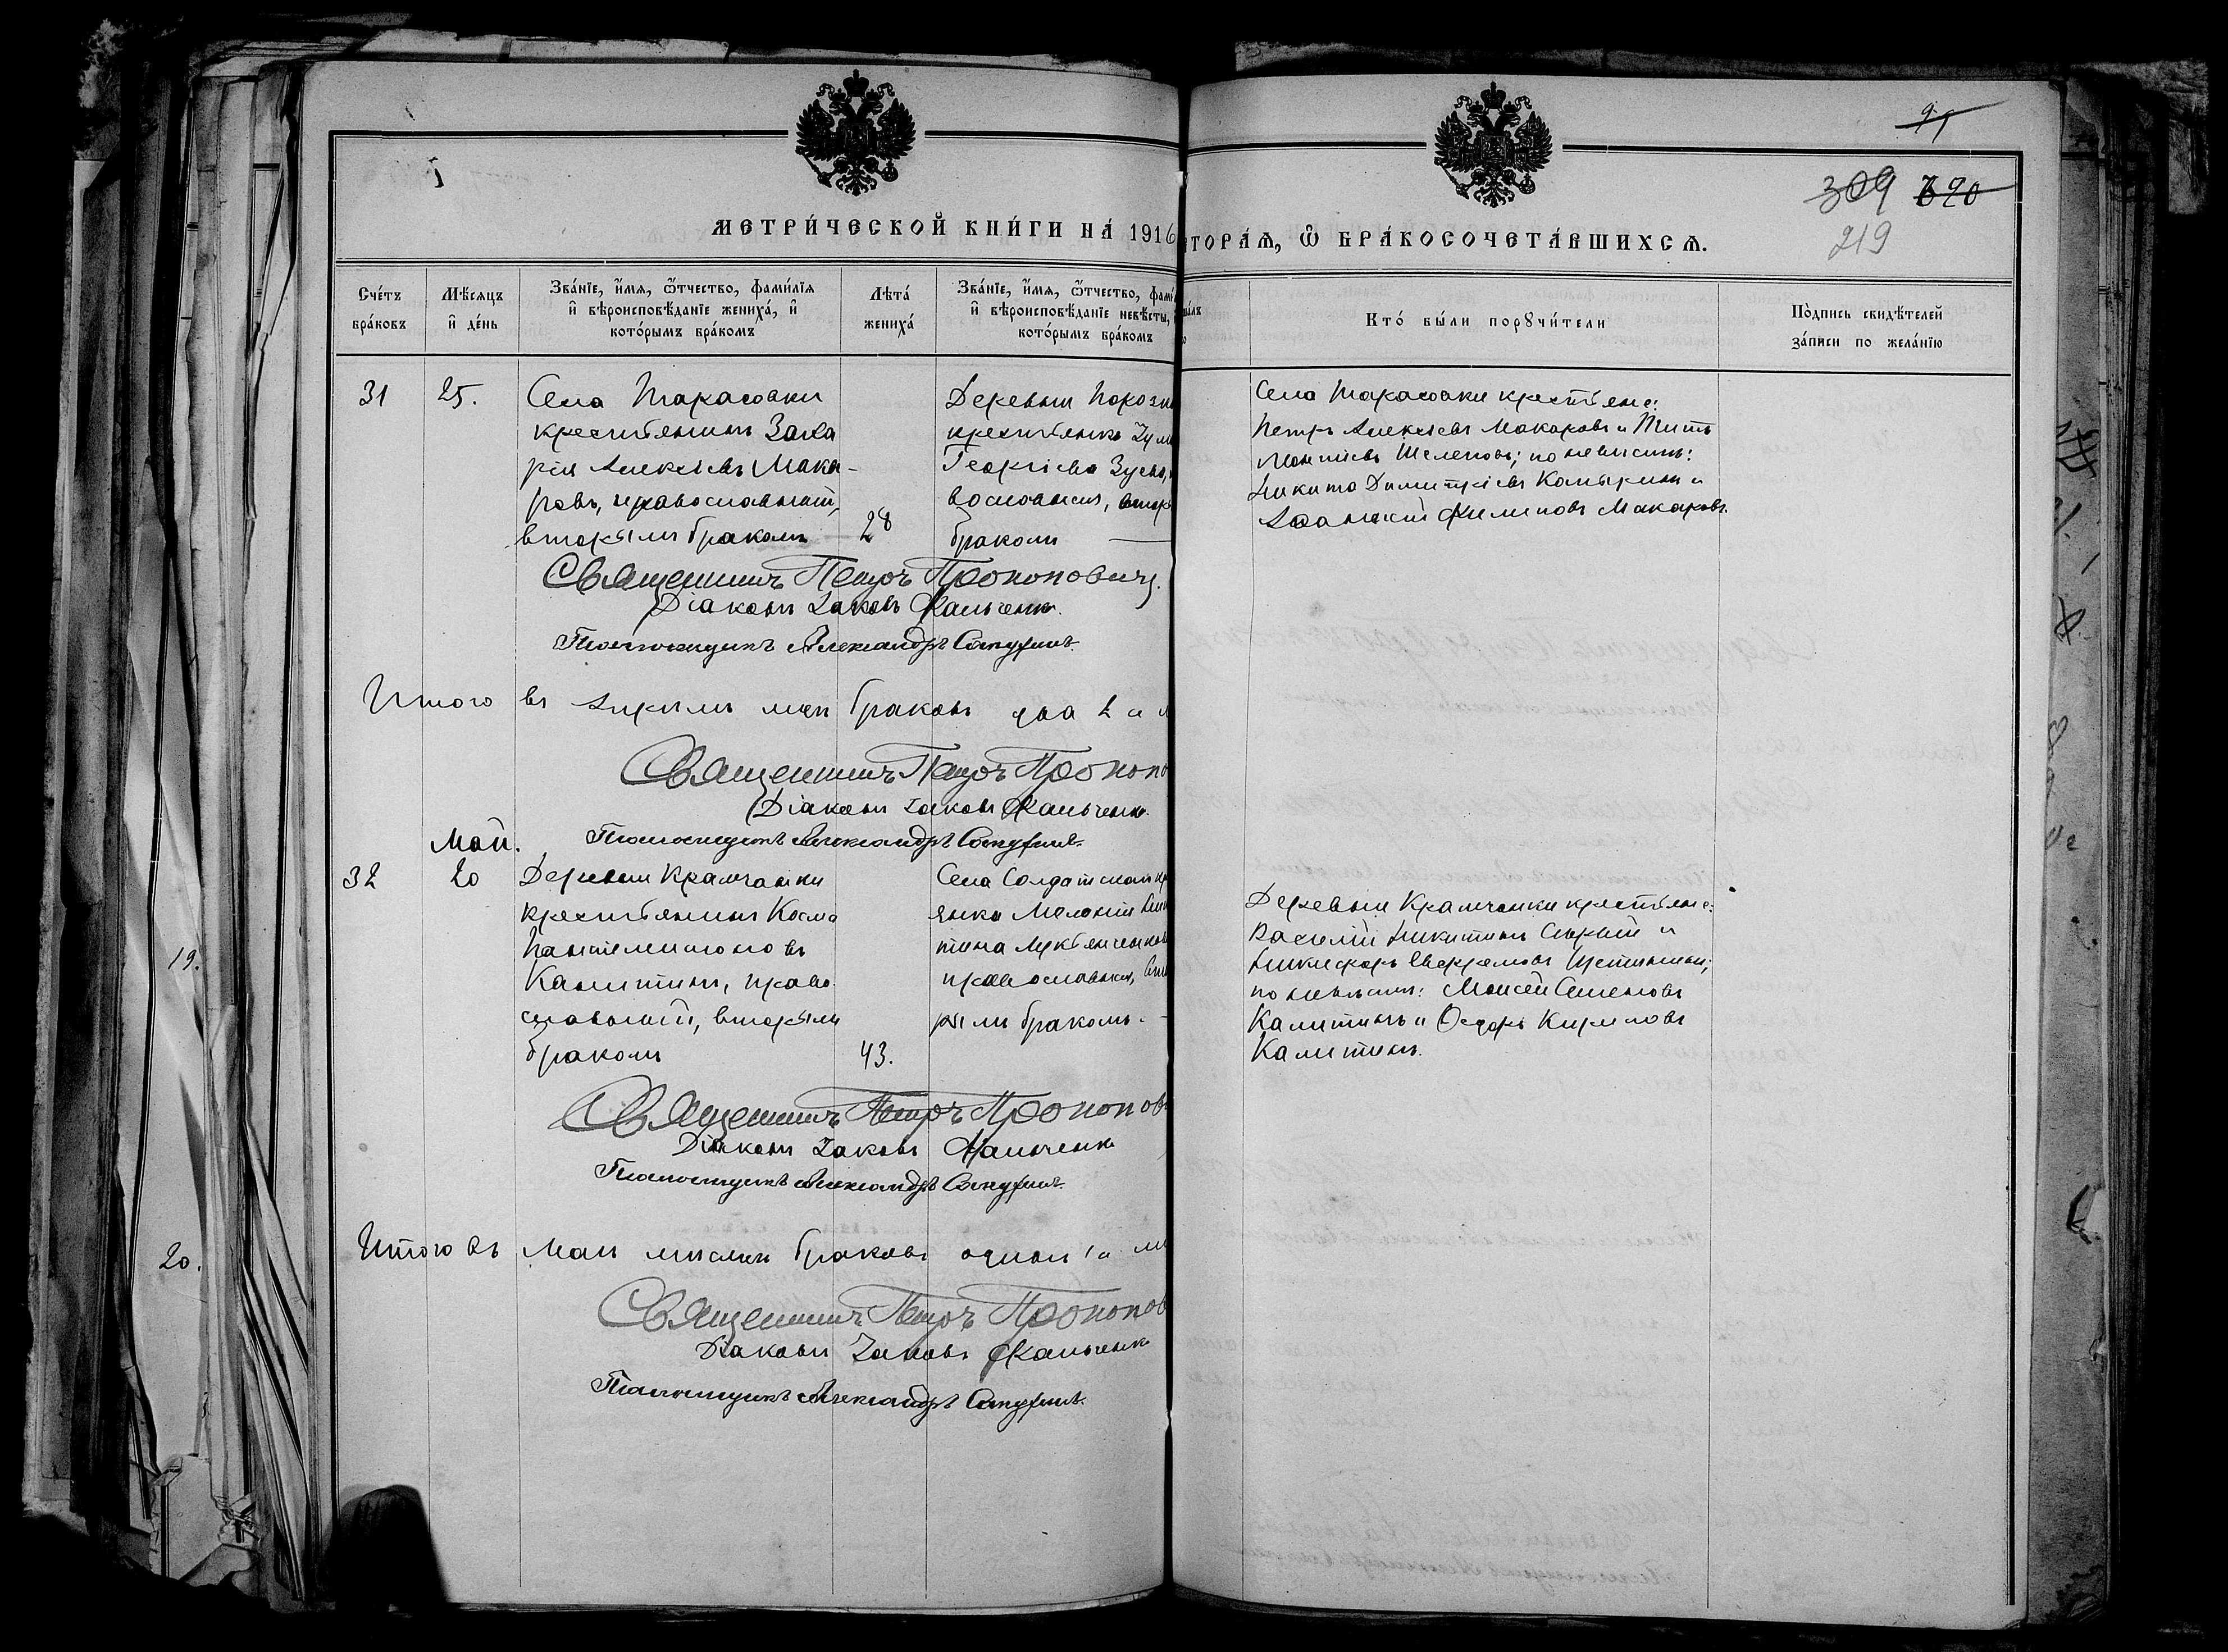 95
309 320
219
МЕТРИ́ЧЕСКОЙ КНИ́ГИ НА́ 1916
ТОРА́Я, Ѡ БРА́КОСОЧЕТА́ВШИХСЯ.
Сче́тъ бра́ковъ
Мѣ́сяцъ и де́нь
Зва́нїе, и́мя, ѻ́тчество, фами́лїя и вѣроисповѣ́данїе жениха́, и кото́рымъ бра́комъ
Лѣта́ жениха́
Зва́нїе, и́мя, ѻ́тчество, фами́
и вѣроисповѣ́данїе невѣ́сты,
кото́рымъ бра́комъ
Кто́ бы́ли порꙋчи́тели
По́дпись свидѣ́телей за́писи по жела́нїю
31
25.
Села Тарасовки
крестьянинъ Заха
рія Алексѣевъ Мака-
ровъ, православный,
вторымъ бракомъ
28
Деревни
крестьянка
Георгіева Зуева,
вославная, втор
бракомъ
Села Тарасовки крестьяне:
Петръ Алексѣевъ Макаровъ и Титъ
Шелеповъ; по невѣстѣ:
Никита Димитріевъ и
Филиповъ Макаровъ.
Священникъ Петръ Прокоповичъ.
Діаконъ Іаковъ Фальченко.
Псаломщикъ Александръ
Итого въ Апрѣлѣ мцѣ браковъ два 2 и
Священникъ Петръ Прокопо
Діаконъ Іаковъ Фальченко.
Псаломщикъ Александръ
Май.
32
20
Деревни Крамчанки
крестьянинъ Косма
Пантелимоновъ
Калитинъ, право
славный, вторымъ
бракомъ
43.
Села Солдатскаго кр
янка Меланія
тина Лукьянченков
православная,
рымъ бракомъ.
Деревни Крамчанки крестьяне:
Василій Никитинъ Сирый и
Никифоръ Евфремовъ
по невѣстѣ: Моисей Семеновъ
Калитинъ и Ѳедоръ Кириловъ
Калитинъ.
Священникъ Петръ Прокопов
Діаконъ Іаковъ Фальченко
Псаломщикъ Александръ
Итого въ Маѣ мѣсяцѣ браковъ одинъ 1 и
Священникъ Петръ Прокопов
Діаконъ Іаковъ Фальченко
Псаломщикъ Александръ
19.
20.